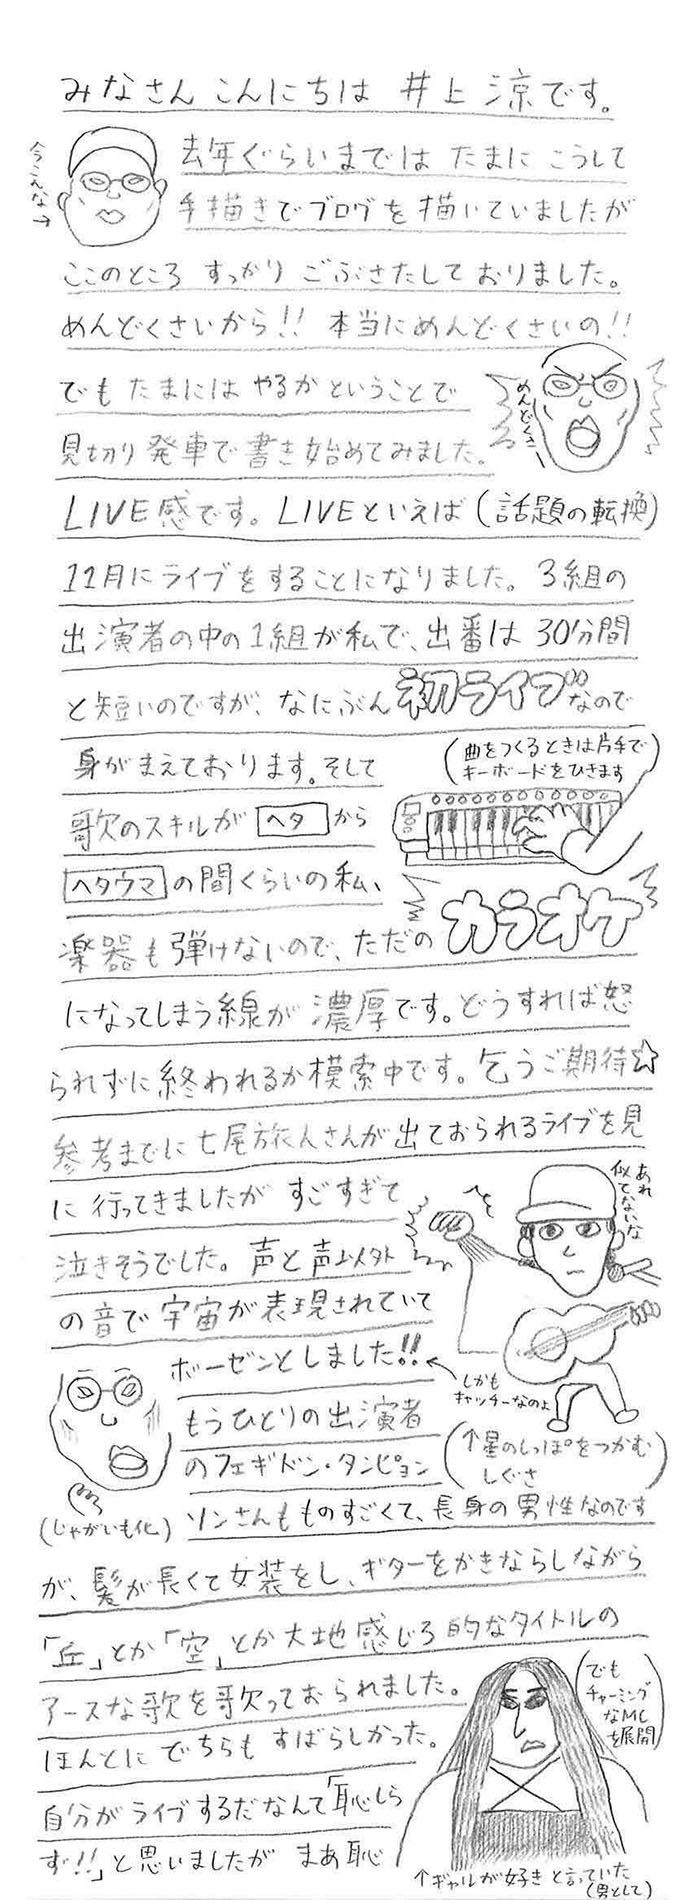 みなさん こんにちは 井上 涼です。
今こんな→
去年ぐらいまでは たまに こうして
手描きでブログを描いていましたが
ここのところ すっかり ごぶさたしておりました。
めんどくさいから!! 本当にめんどくさいの!!
でも たまには やるか ということで
めんどくさー
見切り発車で書き始めてみました。
LIVE感です。LIVEといえば(話題の転換)
11月にライブをすることになりました。3組の
出演者の中の1組が私で、出番は 30分間
と短いのですが、なにぶん 初ライブなので
身がまえております。そして
(曲をつくるときは片手で
キーボードをひきます)
歌のスキルが ヘタ から
ヘタウマ の間くらいの私、
楽器も弾けないので、ただの カラオケ
になってしまう線が 濃厚です。どうすれば怒
られずに終われるか模索中です。乞うご期待☆
参考までに七尾旅人さんが出ておられるライブを見
に行ってきましたが すごすぎて
あれ
似てないな
泣きそうでした。声と声以外
の音で宇宙が表現されていて
ボーゼンとしました!!
←しかも
キャッチーなのよ
もうひとりの出演者
のフェギドン・タンピョン
(↑星のしっぽをつかむ
しぐさ)
(じゃがいも化)
ソンさんもものすごくて、長身の男性なのです
が、髪が長くて女装をし、ギターをかきならしながら
「丘」とか「空」とか大地感じろ的なタイトルの
アースな歌を歌っておられました。
(でも
チャーミング
なMC
を展開)
ほんとに どちらも すばらしかった。
自分がライブするだなんて「恥しら
ず!!」と思いましたが まあ恥
↑ギャルが好きと言っていた
(男として)